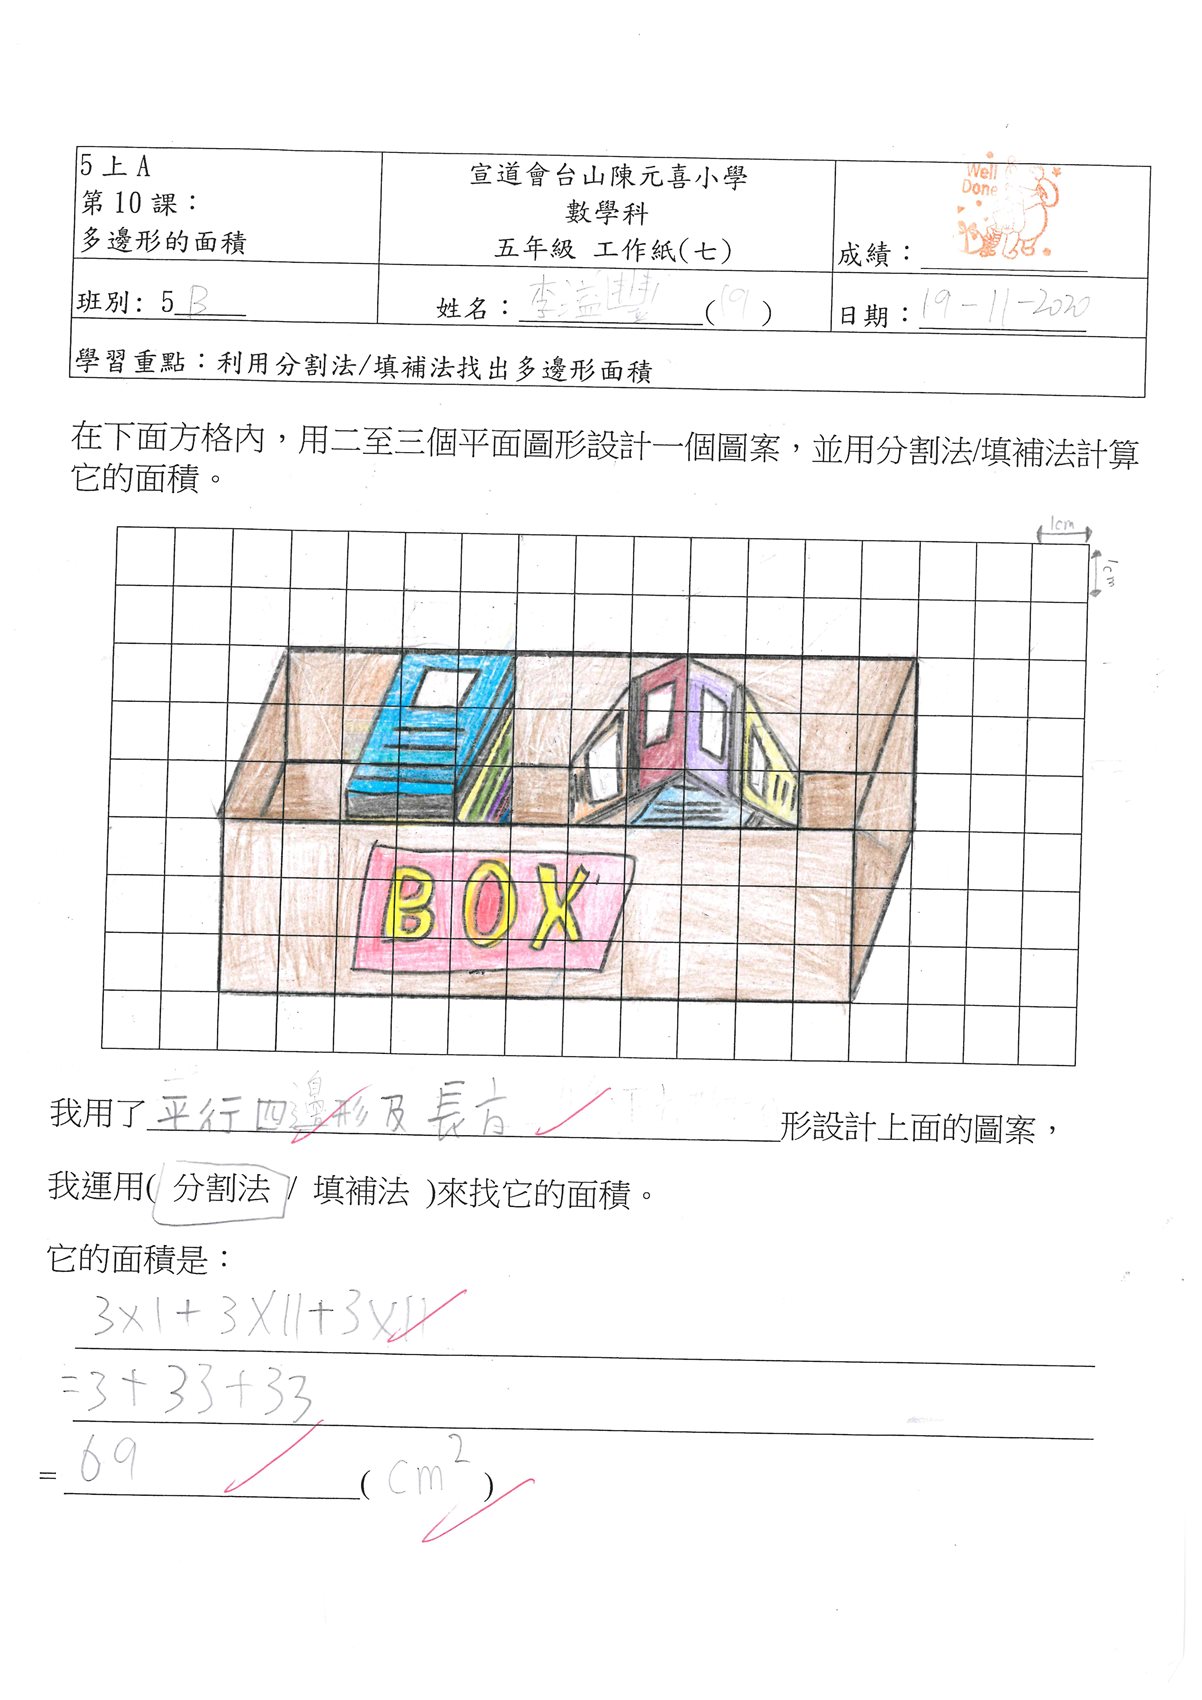 5上A
第10課：
多邊形的面積
宣道會台山陳元喜小學
數學科
五年級 工作紙(七)
Well
Done
成績：
班別: 5 B
姓名： 李溢豐 (19)
日期： 19-11-2020
學習重點：利用分割法/填補法找出多邊形面積
在下面方格內，用二至三個平面圖形設計一個圖案，並用分割法/填補法計算
它的面積。
1cm
1cm
BOX
我用了 平行四邊形及長方 形設計上面的圖案，
我運用( 分割法 / 填補法 )來找它的面積。
它的面積是：
3×1+3×11+3×11
=3+33+33
= 69 ( cm² )